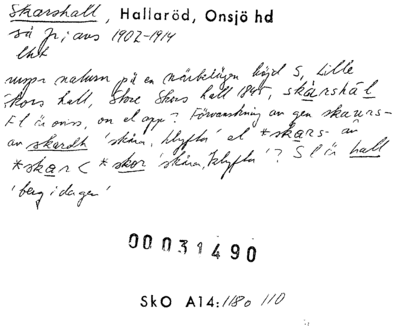 Skarshall, Hallaröd, Onsjö hd
så jr; avs 1902-1914
urspr namn på en närbelägen höjd S, Lille
Skors hall, Store Skors hall 1845, skårshäl
F l är oviss, om el app? Förvanskning av gen skaurs-
av skardh 'skåra, klyfta' el *skårs- av
*skar < *skor 'skåra, klyfta'? S l är hall
'berg i dagen'
00031490
SkO A14: 118o 110